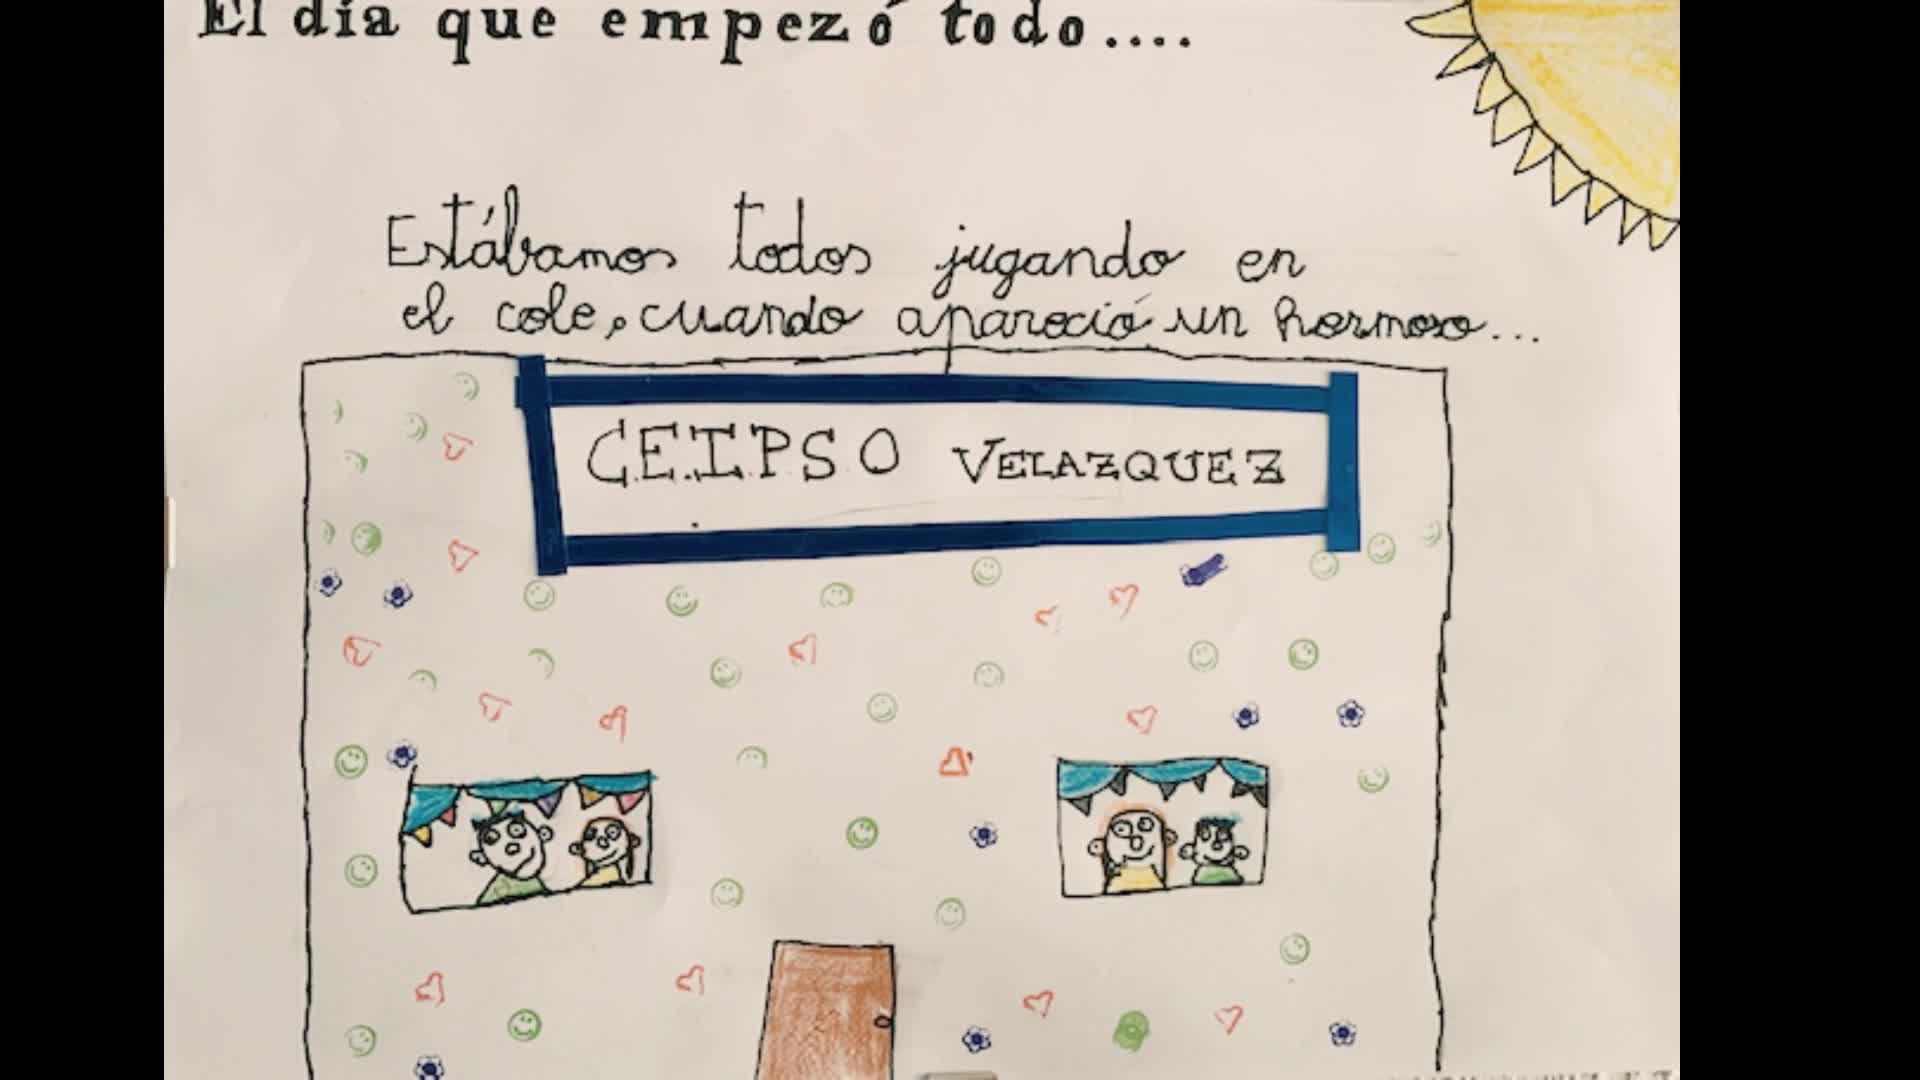 El día que empezó todo....
Estábamos todos jugando en
el cole, cuando apareció un hermoso...
C.E.I.P.S O VELAZQUEZ